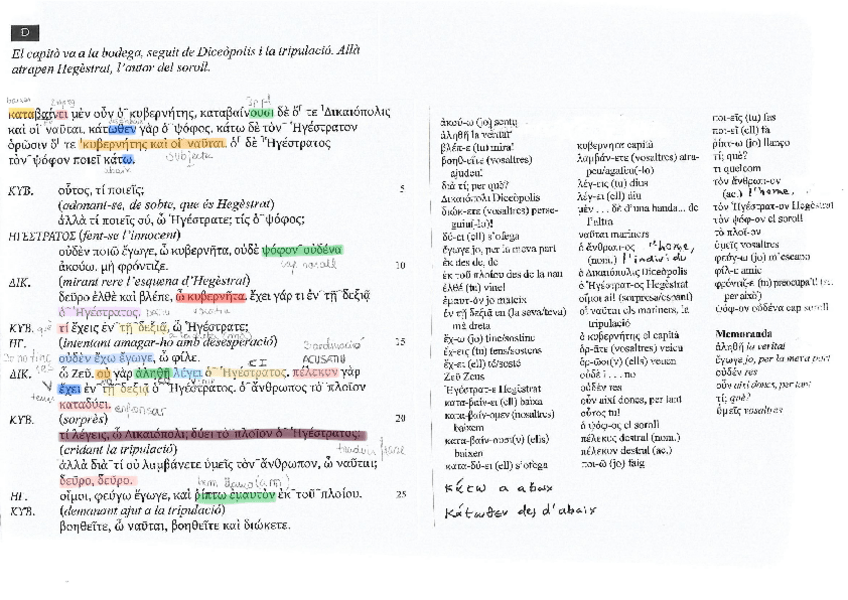 D
El capità va a la bodega, seguit de Diceòpolis i la tripulació. Allà
atrapen Hegèstrat, l'autor del soroll.
καταβαίνει μὲν οὖν ὁ κυβερνήτης, καταβαίνουσι δὲ ὅ τε Δικαιόπολις
καὶ οἱ ναῦται. κάτωθεν γὰρ ὁ ψόφος. κάτω δὲ τὸν Ἡγέστρατον
ὁρῶσιν ὅ τε κυβερνήτης καὶ οἱ ναῦται. ὁ δὲ Ἡγέστρατος
τὸν ψόφον ποιεῖ κάτω.
subjecte
abaix
ΚΥΒ. οὗτος, τί ποιεῖς; 5
(adonant-se, de sobte, que és Hegèstrat)
ἀλλὰ τί ποιεῖς σύ, ὦ Ἡγέστρατε; τίς ὁ ψόφος;
ΗΓΕΣΤΡΑΤΟΣ (fent-se l'innocent)
οὐδὲν ποιῶ ἔγωγε, ὦ κυβερνῆτα, οὐδὲ ψόφον οὐδένα
ἀκούω. μὴ φρόντιζε. 10
cap soroll
ΔΙΚ. (mirant rere l'esquena d'Hegèstrat)
δεῦρο ἐλθὲ καὶ βλέπε, ὦ κυβερνῆτα. ἔχει γάρ τι ἐν τῇ δεξιᾷ
ὁ Ἡγέστρατος.
ΚΥΒ. τί ἔχεις ἐν τῇ δεξιᾷ, ὦ Ἡγέστρατε;
ΗΓ. (intentant amagar-ho amb desesperació) 15
οὐδὲν ἔχω ἔγωγε, ὦ φίλε.
ΔΙΚ. ὦ Ζεῦ. οὐ γὰρ ἀληθῆ λέγει ὁ Ἡγέστρατος. πέλεκυν γὰρ
ἔχει ἐν τῇ δεξιᾷ ὁ Ἡγέστρατος. ὁ ἄνθρωπος τὸ πλοῖον
καταδύει.
enfonsar
ΚΥΒ. (sorprès) 20
τί λέγεις, ὦ Δικαιόπολι; δύει τὸ πλοῖον ὁ Ἡγέστρατος;
(cridant la tripulació)
ἀλλὰ διὰ τί οὐ λαμβάνετε ὑμεῖς τὸν ἄνθρωπον, ὦ ναῦται;
δεῦρο, δεῦρο.
ΗΓ. οἴμοι, φεύγω ἔγωγε, καὶ ῥίπτω ἐμαυτὸν ἐκ τοῦ πλοίου. 25
ΚΥΒ. (demanant ajut a la tripulació)
βοηθεῖτε, ὦ ναῦται, βοηθεῖτε καὶ διώκετε.
ἀκού-ω (jo) sento
ἀληθῆ la veritat
βλέπ-ε (tu) mira!
βοηθ-εῖτε (vosaltres)
ajudeu!
διὰ τί; per què?
Δικαιόπολι Diceòpolis
διώκ-ετε (vosaltres) perse-
guiu(-lo)!
δύ-ει (ell) s'ofega
ἔγωγε jo, per la meva part
ἐκ des de, de
ἐκ τοῦ πλοίου des de la nau
ἐλθέ (tu) vine!
ἐμαυτὸν jo mateix
ἐν τῇ δεξιᾷ en (la seva/teva)
mà dreta
ἔχ-ω (jo) tinc/sostinc
ἔχ-εις (tu) tens/sostens
ἔχ-ει (ell) té/sosté
Ζεῦ Zeus
Ἡγέστρατ-ε Hegèstrat
κατα-βαίν-ει (ell) baixa
κατα-βαίν-ομεν (nosaltres)
baixem
κατα-βαίν-ουσι(ν) (ells)
baixen
κατα-δύ-ει (ell) s'ofega
κάτω a abaix
κάτωθεν des d'abaix
κυβερνῆτα capità
λαμβάν-ετε (vosaltres) atra-
peu/agafeu(-lo)
λέγ-εις (tu) dius
λέγ-ει (ell) diu
μὲν ... δὲ d'una banda... de
l'altra
ναῦται mariners
ὁ ἄνθρωπ-ος l'home,
(nom.) l'individu
ὁ Δικαιόπολις Diceòpolis
ὁ Ἡγέστρατ-ος Hegèstrat
οἴμοι ai! (sorpresa/espant)
οἱ ναῦται els mariners, la
tripulació
ὁ κυβερνήτης el capità
ὁρ-ᾶτε (vosaltres) veieu
ὁρ-ῶσι(ν) (ells) veuen
οὐδὲ ... no
οὐδὲν res
οὖν així doncs, per tant
οὗτος tu!
ὁ ψόφ-ος el soroll
πέλεκυς destral (nom.)
πέλεκυν destral (ac.)
ποι-ῶ (jo) faig
ποι-εῖς (tu) fas
ποι-εῖ (ell) fa
ῥίπτ-ω (jo) llanço
τί; què?
τι quelcom
τὸν ἄνθρωπ-ον
(ac.) l'home,
τὸν Ἡγέστρατ-ον Hegèstrat
τὸν ψόφ-ον el soroll
τὸ πλοῖ-ον
ὑμεῖς vosaltres
φεύγ-ω (jo) m'escapo
φίλ-ε amic
φρόντιζ-ε (tu) preocupa't!
per això)
ψόφ-ον οὐδένα cap soroll
Memoranda
ἀληθῆ la veritat
ἔγωγε jo, per la meva part
οὐδὲν res
οὖν així doncs, per tant
τί; què?
ὑμεῖς vosaltres